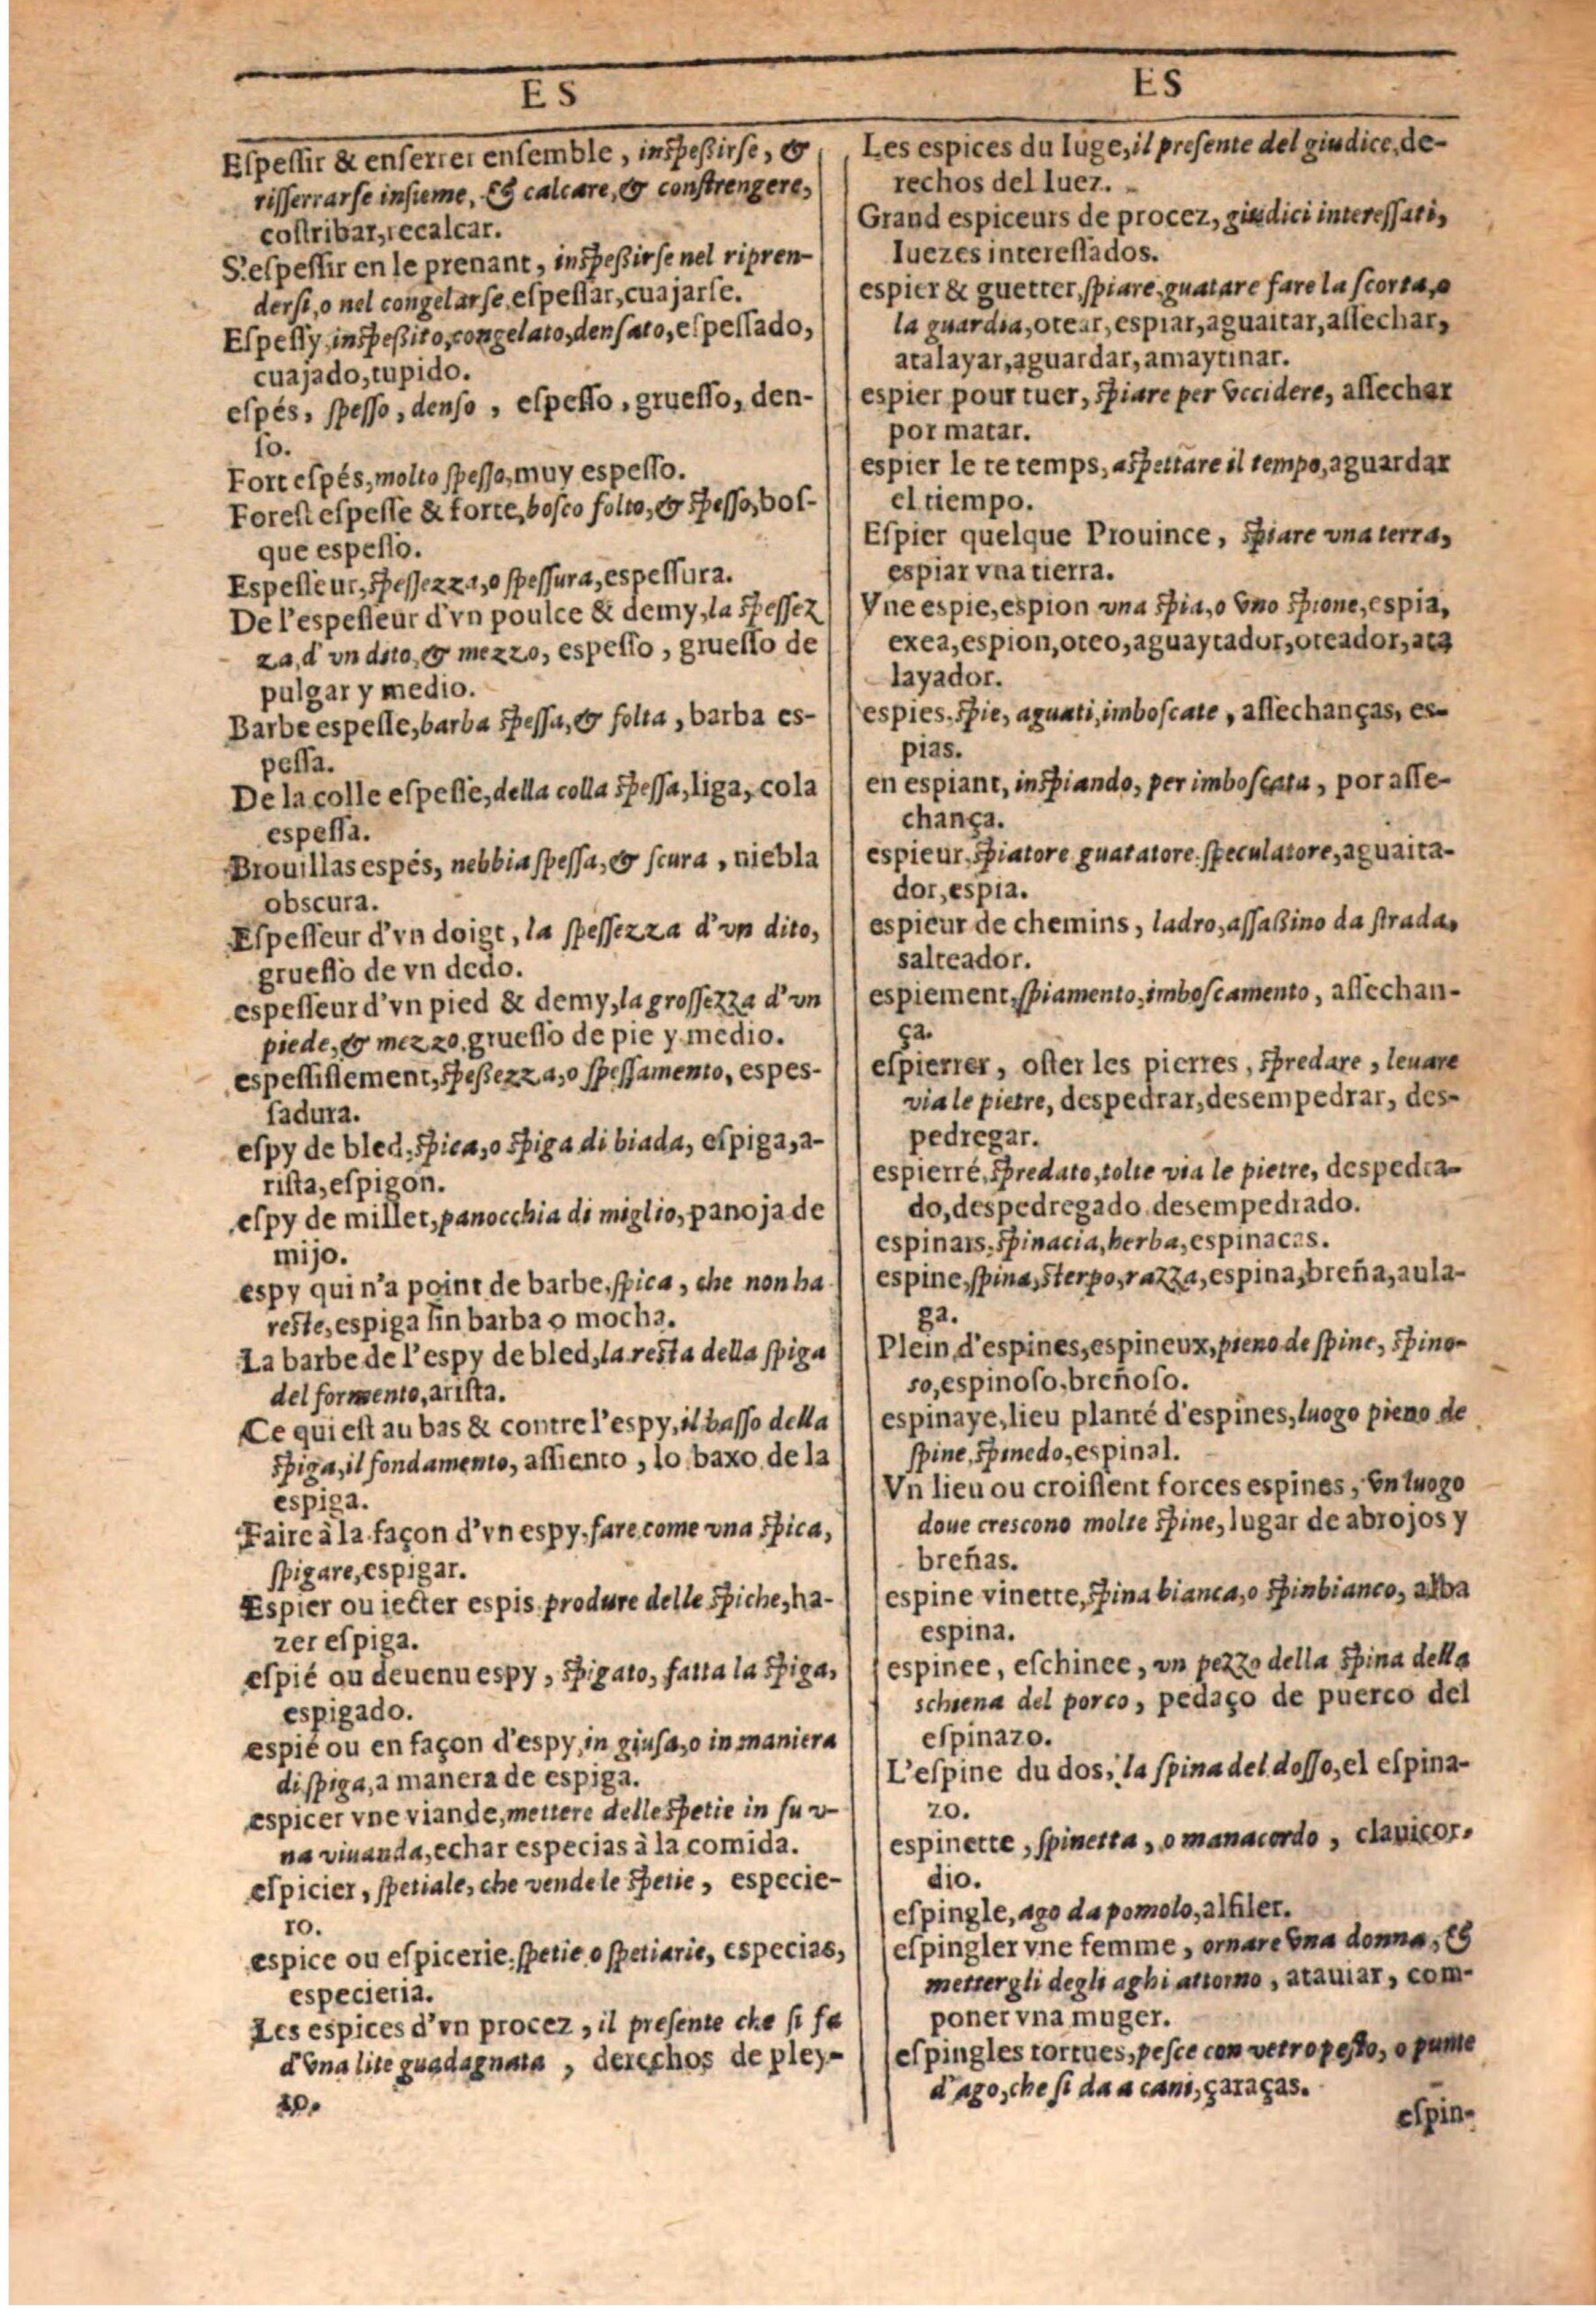 ES
Eſpeſſir & enſerrer enſemble, inſpeßirſe, &
riſſerrarſe inſieme, & calcare, & conſtrengere,
coſtribar, recalcar.
S'eſpeſſir en le prenant, inſpeßirſe nel ripren-
derſi, o nel congelarſe, eſpeſſar, cuajarſe.
Eſpeſſy, inſpeßito, congelato, denſato, eſpeſſado,
cuajado, tupido.
eſpés, ſpeſſo, denſo, eſpeſſo, grueſſo, den-
ſo.
Fort eſpés, molto ſpeſſo, muy eſpeſſo.
Foreſt eſpeſſe & forte, bosco folto, & ſpeſſo, boſ-
que espeſſo.
Espeſſeur, ſpeſſezza, o ſpeſſura, espeſſura.
De l'espeſſeur d'vn poulce & demy, la ſpeſſez
za, d'vn dito, & mezzo, espeſſo, grueſſo de
pulgar y medio.
Barbe espeſſe, barba ſpeſſa, & folta, barba es-
peſſa.
De la colle eſpeſſe, della colla ſpeſſa, liga, cola
espeſſa.
Brouillas espés, nebbia ſpeſſa, & ſcura, niebla
obscura.
Eſpeſſeur d'vn doigt, la ſpeſſezza d'vn dito,
grueſſo de vn dedo.
espeſſeur d'vn pied & demy, la groſſezza d'vn
piede, & mezzo, grueſſo de pie y medio.
espeſſiſſement, ſpeßezza, o ſpeſſamento, espes-
ſadura.
eſpy de bled, ſpica, o ſpiga di biada, eſpiga, a-
riſta, eſpigon.
eſpy de millet, panocchia di miglio, panoja de
mijo.
espy qui n'a point de barbe, ſpica, che non ha
reſte, espiga ſin barba o mocha.
La barbe de l'espy de bled, la reſta della ſpiga
del formento, ariſta.
Ce qui eſt au bas & contre l'espy, il baſſo della
ſpiga, il fondamento, aſſiento, lo baxo de la
espiga.
Faire à la façon d'vn espy, fare come vna ſpica,
ſpigare, espigar.
Espier ou iecter espis, produre delle ſpiche, ha-
zer eſpiga.
eſpié ou deuenu espy, ſpigato, fatta la ſpiga,
espigado.
espié ou en façon d'espy, in giuſa, o in maniera
di ſpiga, a manera de espiga.
espicer vne viande, mettere delle ſpetie in ſu v-
na viuanda, echar especias à la comida.
eſpicier, ſpetiale, che vende le ſpetie, especie-
ro.
espice ou eſpicerie, ſpetie o ſpetiarie, especias,
especieria.
Les espices d'vn procez, il preſente che ſi fa
d'vna lite guadagnata, derechos de pley-
to.
ES
Les espices du Iuge, il preſente del giudice, de-
rechos del Iuez.
Grand espiceurs de procez, giudici intereſſati,
Iuezes intereſſados.
espier & guetter, ſpiare, guatare fare la ſcorta, o
la guardia, otear, espiar, aguaitar, aſſechar,
atalayar, aguardar, amaytinar.
espier pour tuer, ſpiare per vccidere, aſſechar
por matar.
espier le te temps, aſpettare il tempo, aguardar
el tiempo.
Eſpier quelque Prouince, ſpiare vna terra,
espiar vna tierra.
Vne espie, espion vna ſpia, o vno ſpione, espia,
exea, espion, oteo, aguaytador, oteador, ata
layador.
espies, ſpie, aguati, imboſcate, aſſechanças, es-
pias.
en espiant, inſpiando, per imboſcata, por aſſe-
chança.
espieur, ſpiatore guatatore, ſpeculatore, aguaita-
dor, espia.
espieur de chemins, ladro, aſſaßino da ſtrada,
salteador.
espiement, ſpiamento, imboſcamento, aſſechan-
ça.
eſpierrer, oſter les pierres, ſpredare, leuare
via le pietre, despedrar, desempedrar, des-
pedregar.
espierré, ſpredato, tolte via le pietre, despedra-
do, despedregado desempedrado.
espinars, ſpinacia, herba, espinacas.
espine, ſpina, ſterpo, razza, espina, breña, aula-
ga.
Plein d'espines, espineux, pieno de ſpine, ſpino-
so, espinoſo, breñoſo.
espinaye, lieu planté d'espines, luogo pieno de
ſpine, ſpinedo, espinal.
Vn lieu ou croiſſent forces espines, vn luogo
doue crescono molte ſpine, lugar de abrojos y
breñas.
espine vinette, ſpina bianca, o ſpinbianco, alba
espina.
espinee, eſchinee, vn pezzo della ſpina della
schiena del porco, pedaço de puerco del
eſpinazo.
L'eſpine du dos, la ſpina del doſſo, el eſpina-
zo.
espinette, ſpinetta, o manacordo, clauicor-
dio.
eſpingle, ago da pomolo, alfiler.
eſpingler vne femme, ornare vna donna, &
mettergli degli aghi attorno, atauiar, com-
poner vna muger.
eſpingles tortues, peſce con vetro peſto, o punte
d'ago, che ſi da a cani, çaraças.
eſpin-